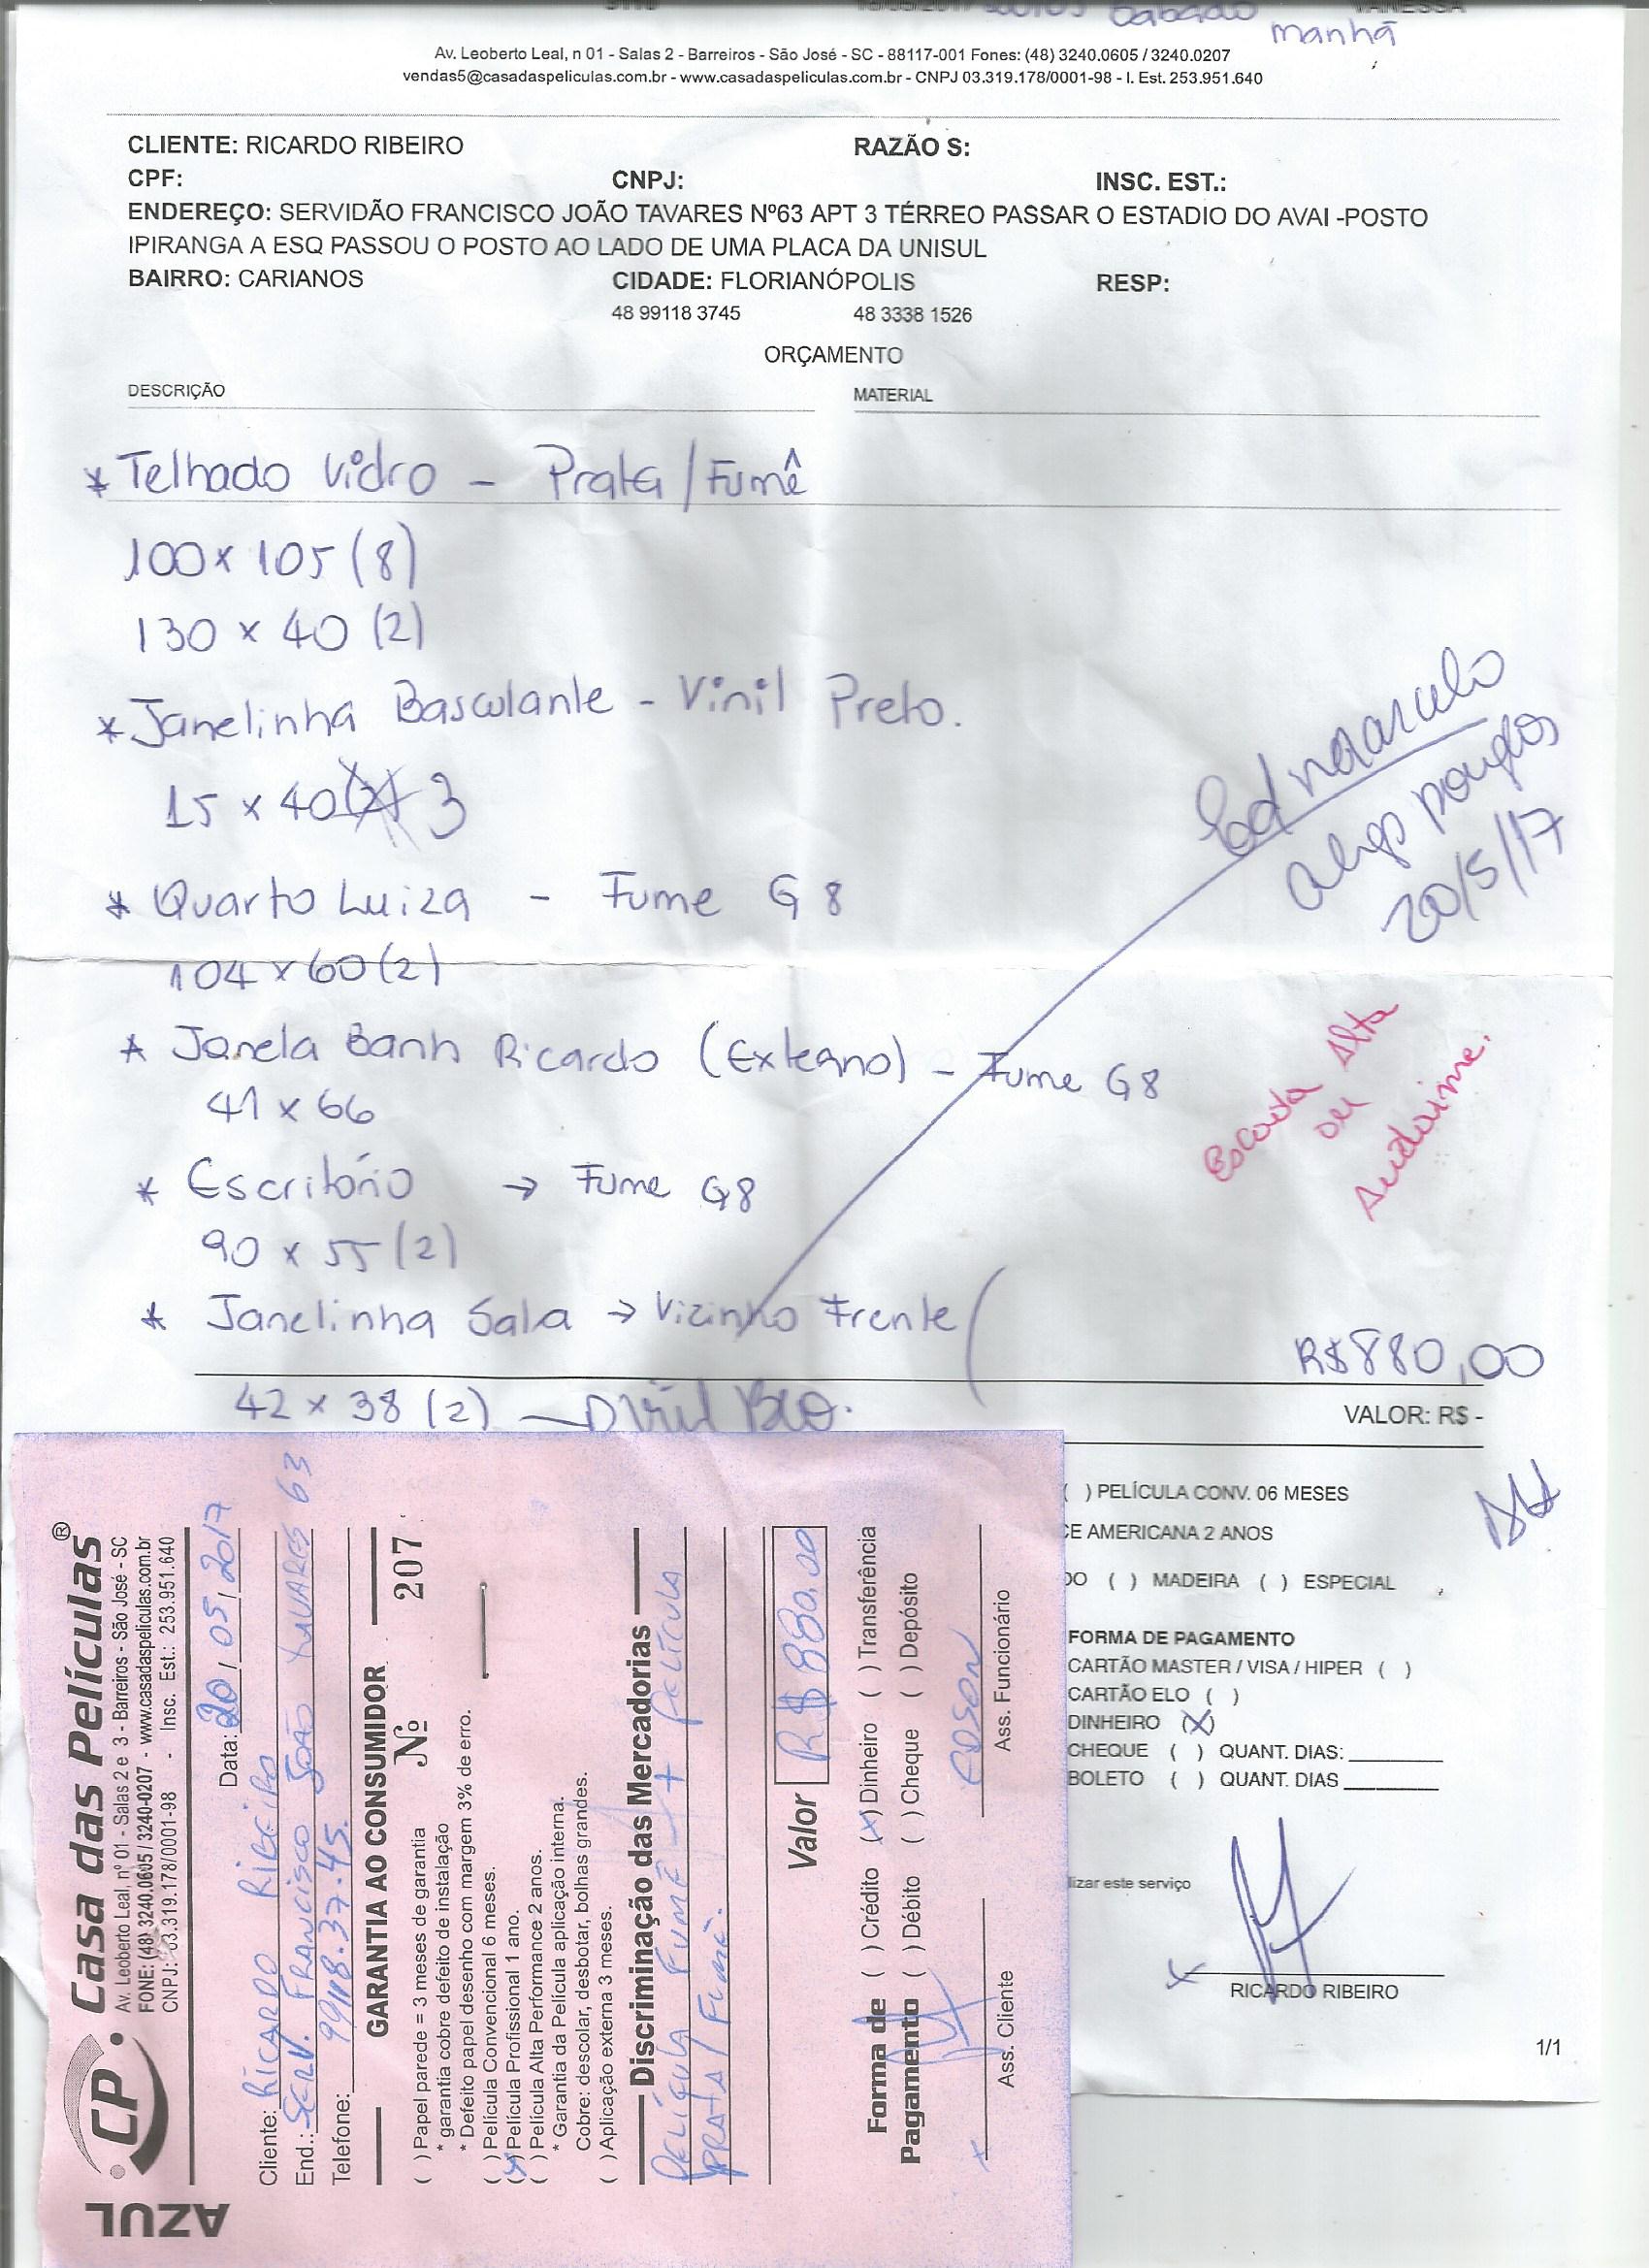 Sabado
manhã
Av. Leoberto Leal, n 01 - Salas 2 - Barreiros - São José - SC - 88117-001 Fones: (48) 3240.0605 / 3240.0207
vendas5@casadaspeliculas.com.br - www.casadaspeliculas.com.br - CNPJ 03.319.178/0001-98 - I. Est. 253.951.640
CLIENTE: RICARDO RIBEIRO RAZÃO S:
CPF: CNPJ: INSC. EST.:
ENDEREÇO: SERVIDÃO FRANCISCO JOÃO TAVARES Nº63 APT 3 TÉRREO PASSAR O ESTADIO DO AVAI -POSTO
IPIRANGA A ESQ PASSOU O POSTO AO LADO DE UMA PLACA DA UNISUL
BAIRRO: CARIANOS CIDADE: FLORIANÓPOLIS RESP:
48 99118 3745 48 3338 1526
ORÇAMENTO
DESCRIÇÃO MATERIAL
* Telhado Vidro - Prata/Fumê
100 x 105 (8)
130 x 40 (2)
* Janelinha Basculante - Vinil Preto.
15 x 40 3
20/5/17
* Quarto Luiza - Fume G8
104 x 60 (2)
* Janela Banh Ricardo (Externo) - Fume G8
41 x 66
Escada Alta
ou
Andaime.
* Escritório → Fume G8
90 x 55 (2)
* Janelinha Sala → Vizinho Frente
R$880,00
42 x 38 (2)
VALOR: R$ -
( ) PELÍCULA CONV. 06 MESES
CE AMERICANA 2 ANOS
DO ( ) MADEIRA ( ) ESPECIAL
FORMA DE PAGAMENTO
CARTÃO MASTER / VISA / HIPER ( )
CARTÃO ELO ( )
DINHEIRO (X)
CHEQUE ( ) QUANT. DIAS:
BOLETO ( ) QUANT. DIAS
lizar este serviço
x
RICARDO RIBEIRO
1/1
AZUL
CP Casa das Películas®
Av. Leoberto Leal, nº 01 - Salas 2 e 3 - Barreiros - São José - SC
FONE: (48) 3240.0605 / 3240-0207 - www.casadaspeliculas.com.br
CNPJ: 03.319.178/0001-98 - Insc. Est.: 253.951.640
Data: 20/05/2017
Cliente: RICARDO RIBEIRO
End.: SERV. FRANCISCO JOÃO TAVARES 63
Telefone: 99118.37.45.
GARANTIA AO CONSUMIDOR
Nº 207
( ) Papel parede = 3 meses de garantia
* garantia cobre defeito de instalação
* Defeito papel desenho com margem 3% de erro.
( ) Película Convencional 6 meses.
(x) Película Profissional 1 ano.
( ) Película Alta Performance 2 anos.
* Garantia da Película aplicação interna.
Cobre: descolar, desbotar, bolhas grandes.
( ) Aplicação externa 3 meses.
Discriminação das Mercadorias
PELÍCULA FUMÊ + PELÍCULA
PRATA/FUMÊ.
Valor R$ 880,00
Forma de Pagamento
( ) Crédito (x) Dinheiro ( ) Transferência
( ) Débito ( ) Cheque ( ) Depósito
x EDSON
Ass. Cliente Ass. Funcionário